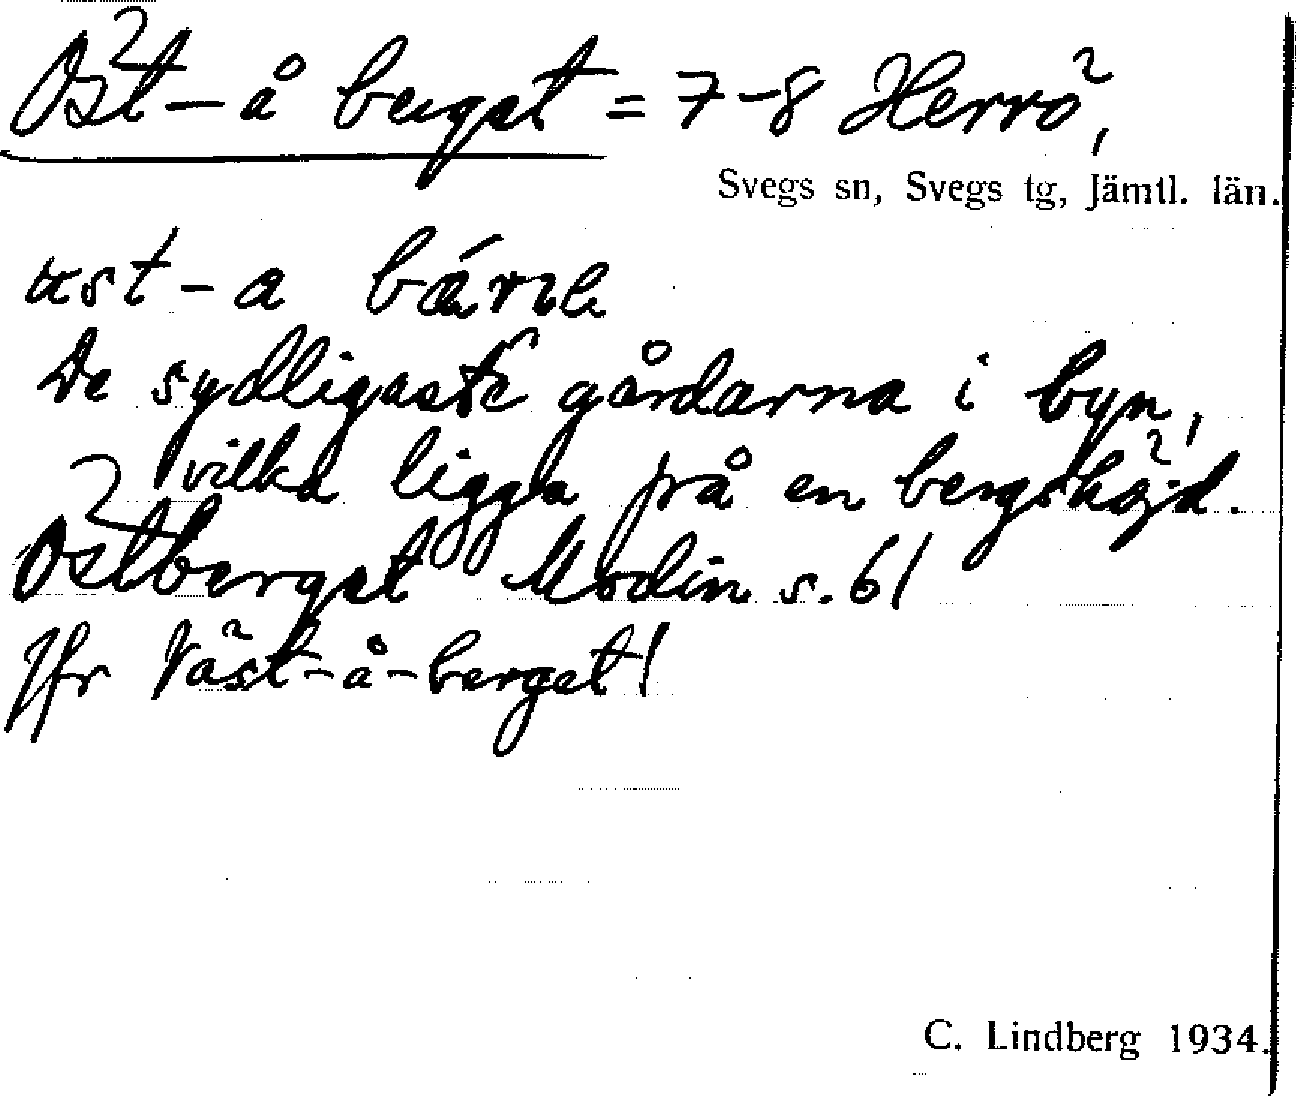 Öst-å berget = 7-8 Herrö,
Svegs sn, Svegs tg, Jämtl. län.
ust-a
De sydligaste gårdarna i byn,
vilka ligga på en bergshöjd.
Östberget Modin s. 61
Jfr Väst-å-berget!
C. Lindberg 1934.